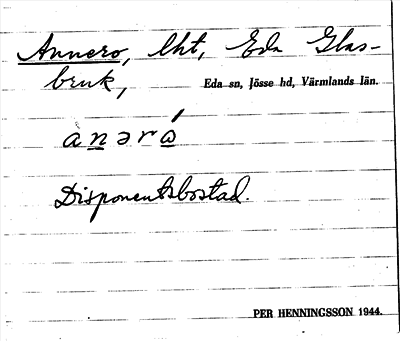 Annero, lht, Eda Glas-
bruk, Eda sn, Jösse hd, Värmlands län.
anəró
Disponentsbostad.
PER HENNINGSSON 1944.